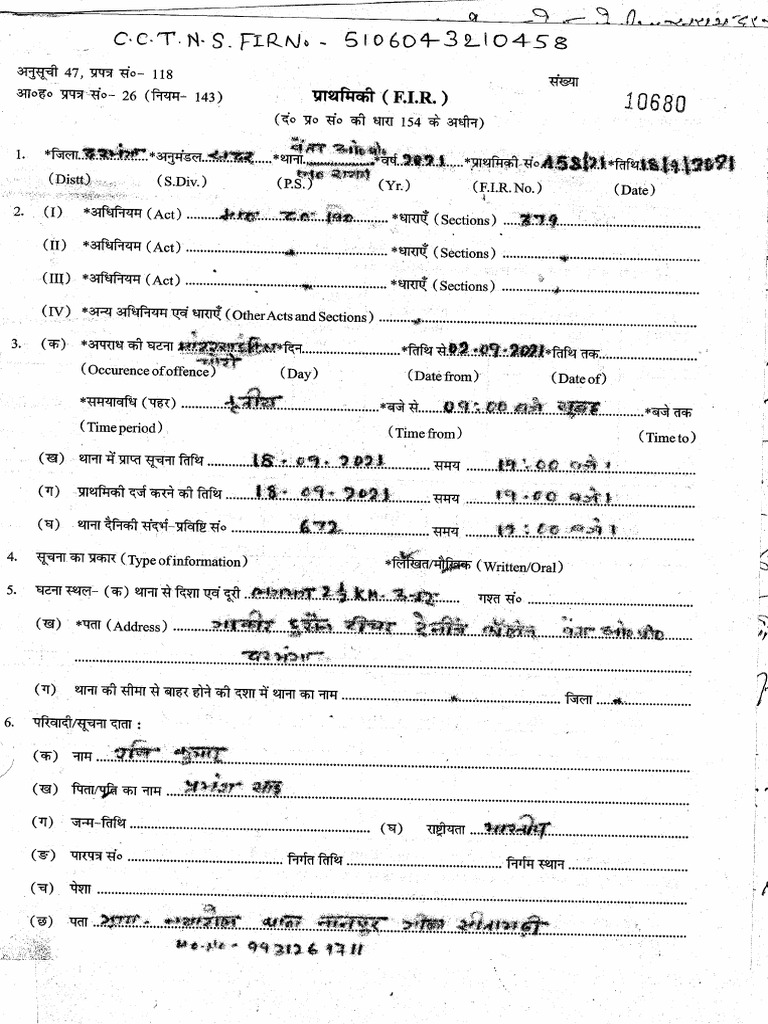 C.C.T.N.S. FIR No. - 5106043210458
अनुसूची 47, प्रपत्र सं०- 118
संख्या
आ०ह० प्रपत्र सं०- 26 (नियम- 143)
प्राथमिकी ( F.I.R. )
10680
(दं० प्र० सं० की धारा 154 के अधीन)
बेंता ओ०पी०
1. *जिला दरभंगा *अनुमंडल सदर *थाना *वर्ष 2021 *प्राथमिकी सं० 458/21 *तिथि 18/9/2021
(Distt.) (S.Div.) (P.S.) (Yr.) (F.I.R. No.) (Date)
2. (I) *अधिनियम (Act) भा० द० वि० *धाराएँ (Sections) 379
(II) *अधिनियम (Act) *धाराएँ (Sections)
(III) *अधिनियम (Act) *धाराएँ (Sections)
(IV) *अन्य अधिनियम एवं धाराएँ (Other Acts and Sections)
3. (क) *अपराध की घटना मोटरसाईकिल *दिन *तिथि से 02-09-2021 *तिथि तक
चोरी
(Occurence of offence) (Day) (Date from) (Date of)
*समयावधि (पहर) तृतीय *बजे से 09:00 बजे सुबह *बजे तक
(Time period) (Time from) (Time to)
(ख) थाना में प्राप्त सूचना तिथि 18-09-2021 समय 19:00 बजे।
(ग) प्राथमिकी दर्ज करने की तिथि 18-09-2021 समय 19:00 बजे।
(घ) थाना दैनिकी संदर्भ-प्रविष्टि सं० 672 समय 19:00 बजे।
4. सूचना का प्रकार (Type of information) *लिखित/मौखिक (Written/Oral)
5. घटना स्थल- (क) थाना से दिशा एवं दूरी 2½ KM. गश्त सं०
(ख) *पता (Address) जाकीर हुसैन टीचर ट्रेनींग कॉलेज बेंता ओ०पी०
दरभंगा
(ग) थाना की सीमा से बाहर होने की दशा में थाना का नाम जिला
6. परिवादी/सूचना दाता :
(क) नाम रवि कुमार
(ख) पिता/पति का नाम साह
(ग) जन्म-तिथि (घ) राष्ट्रीयता भारतीय
(ङ) पारपत्र सं० निर्गत तिथि निर्गम स्थान
(च) पेशा
(छ) पता ग्राम- थाना नानपुर जिला सीतामढ़ी
Mo.No- 9931269711